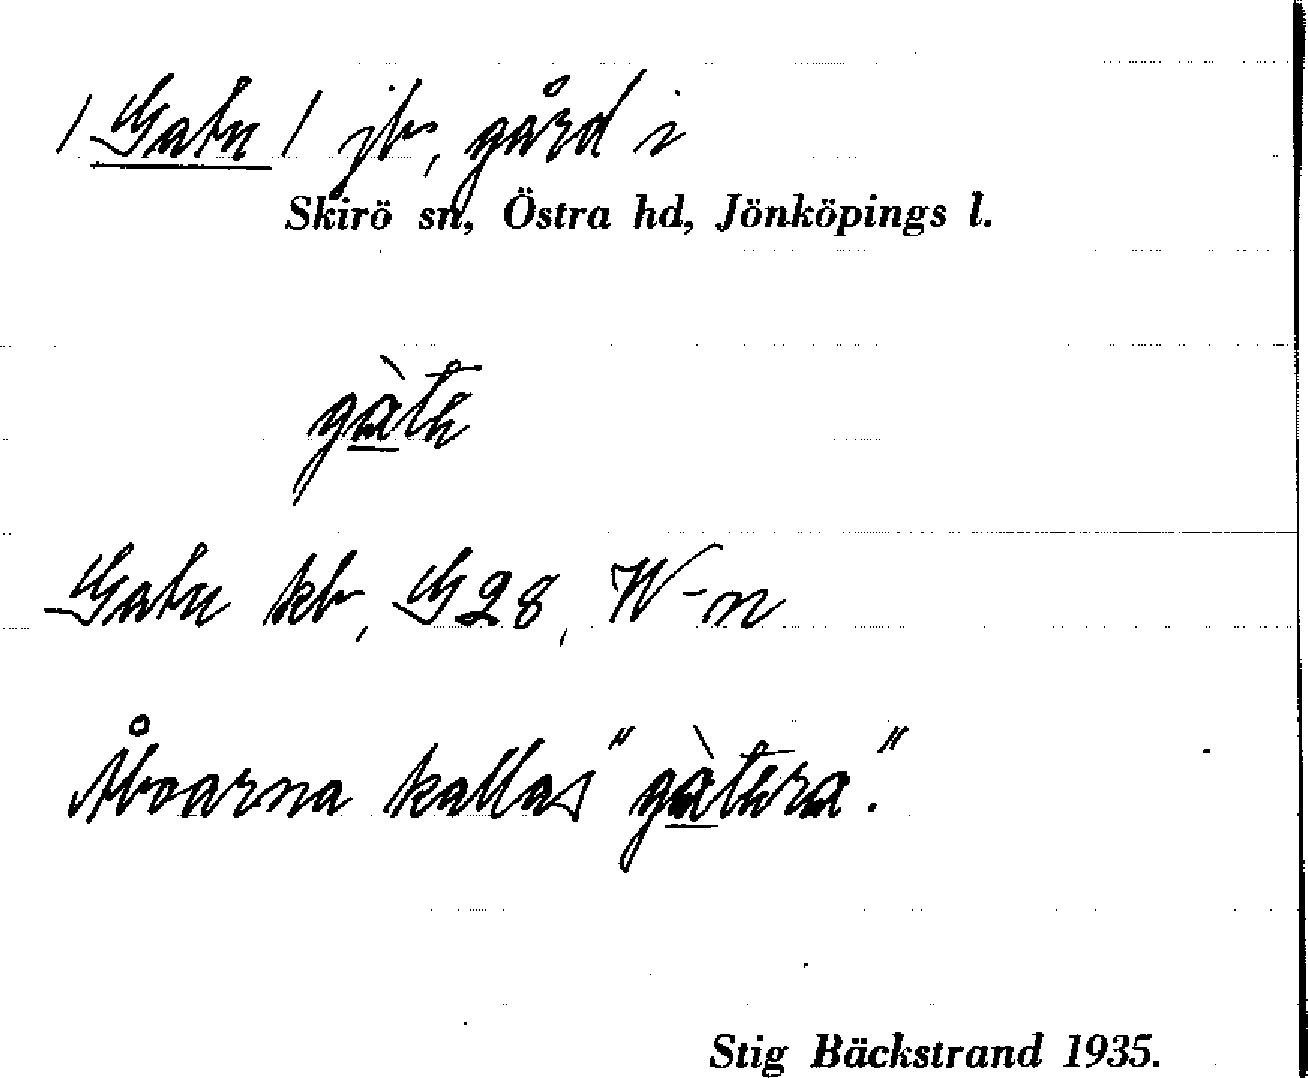 /Gatu/ jb, gård i
Skirö sn, Östra hd, Jönköpings l.
gàtu
Gatu kb, G 28, W-n
Åboarna kallas "gàtura".
Stig Bäckstrand 1935.